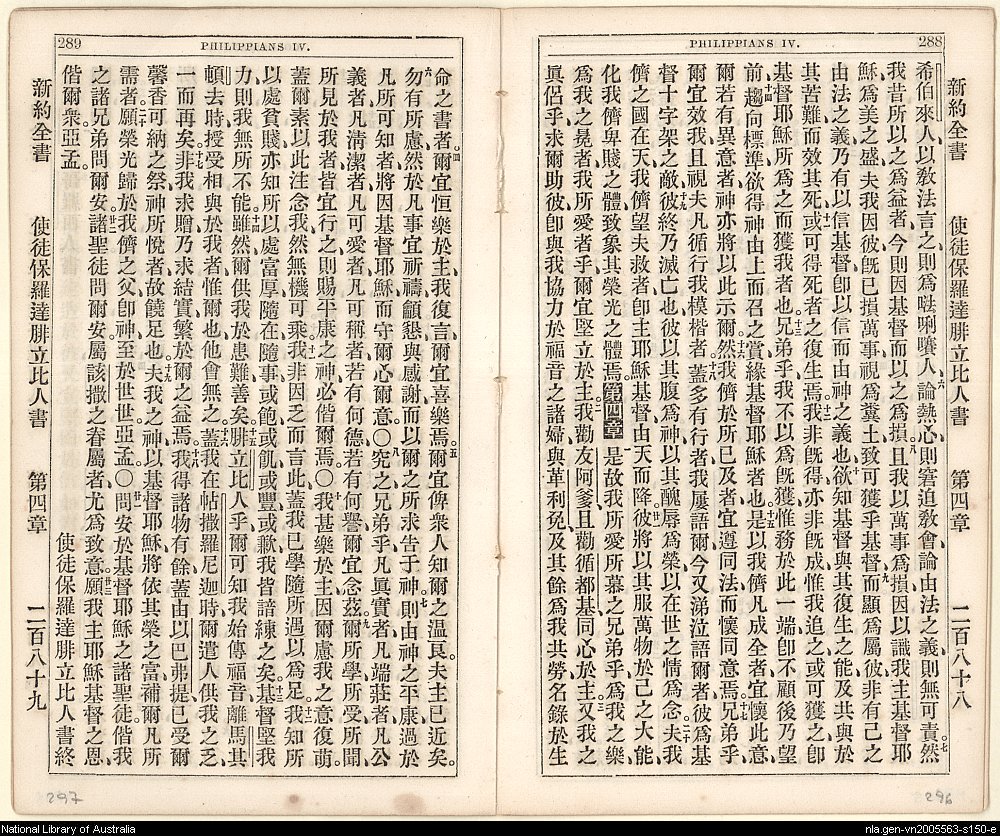 PHILIPPIANS IV.
288
新約全書 使徒保羅達腓立比人書 第四章 二百八十八
希伯來人、以教法言之、則爲𠵽唎㘔人、六論熱心、則窘追教會、論由法之義、則無可責。七然
我昔所以之爲益者、今則因基督而以之爲損、八且我以萬事爲損、因以識我主基督耶
穌爲美之盛、夫我因彼旣已損萬事、視爲糞土、致可獲乎基督、九而顯爲屬彼、非有己之
由法之義、乃有以信基督、卽以信而由神之義也、十欲知基督與其復生之能、及共與於
其苦難而效其死、十一或可得死者之復生焉、十二我非旣得、亦非旣成、惟我追之、或可獲之、卽
基督耶穌所爲之而獲我者也、十三兄弟乎、我不以爲旣獲、惟務於此一端、卽不顧後、乃望
前、十四趨向標準、欲得神由上而召之賞、緣基督耶穌者也、十五是以我儕凡成全者、宜懷此意、
若爾有異意者、神亦將以此示爾、十六然我儕於所已及者、宜遵同法而懷同意焉、十七兄弟乎、
爾宜效我、且視夫凡循行我模楷者、十八蓋多有行者、我屢語爾、今又涕泣語爾者、彼爲基
督十字架之敵、十九彼終乃滅亡也、彼以其腹爲神、以其醜辱爲榮、以在世之情爲念、二十夫我
儕之國在天、我儕望夫救者、卽主耶穌基督、由天而降、廿一彼將以其服萬物於己之大能、
化我儕卑賤之體、致象其榮光之體焉。第四章 一是故我所愛所慕之兄弟乎、爲我之樂、
爲我之冕者、我所愛者乎、爾宜堅立於主、二我勸友阿爹、且勸循都基、同心於主、三又我之
眞侶乎、求爾助彼、卽與我協力於福音之諸婦、與革利免、及其餘爲我共勞、名錄於生
PHILIPPIANS IV.
289
命之書者。四爾宜恒樂於主、我復言、爾宜喜樂焉。五爾宜俾衆人知爾之温良、夫主已近矣。
六勿有所慮、然於凡事宜祈禱籲懇與感謝、而以爾之所求告于神、七則由神之平康過於
凡所可知者、將因基督耶穌而守爾心爾意。〇八究之兄弟乎、凡眞實者、凡端莊者、凡公
義者、凡清潔者、凡可愛者、凡可稱者、若有何德、若有何譽、爾宜念茲、九爾所學所受所聞
所見於我者、皆宜行之、則賜平康之神必偕爾焉。〇十我甚樂於主、因爾慮我之意復萌、
蓋爾素以此注念我、然無機可乘、十一我非因乏而言此、蓋我已學隨所遇以爲足、十二我知所
以處貧賤、亦知所以處富厚、隨在隨事、或飽或飢、或豐或歉、我皆諳練之矣、十三基督堅我
力、則我無所不能、十四雖然爾供我於患難、善矣、十五腓立比人乎、爾可知我始傳福音、離馬其
頓去時、授受相與於我者、惟爾也、他會無之、十六蓋我在帖撒羅尼迦時、爾遣人供我之乏、
一而再矣、十七非我求贈、乃求結實繁於爾之益焉、十八我得諸物有餘、蓋由以巴弗提已受爾
馨香可納之祭、神所悅者、故饒足也、十九夫我之神、以基督耶穌、將依其榮之富、補爾凡所
需者、二十願榮光歸於我儕之父、卽神、至於世世、亞孟。〇廿一問安於基督耶穌之諸聖徒。偕我
之諸兄弟問爾安、廿二諸聖徒問爾安、屬該撒之眷屬者、尤爲致意、廿三願我主耶穌基督之恩、
偕爾衆、亞孟 使徒保羅達腓立比人書終
新約全書 使徒保羅達腓立比人書 第四章 二百八十九
297
296
National Library of Australia
nla.gen-vn2005563-s150-e